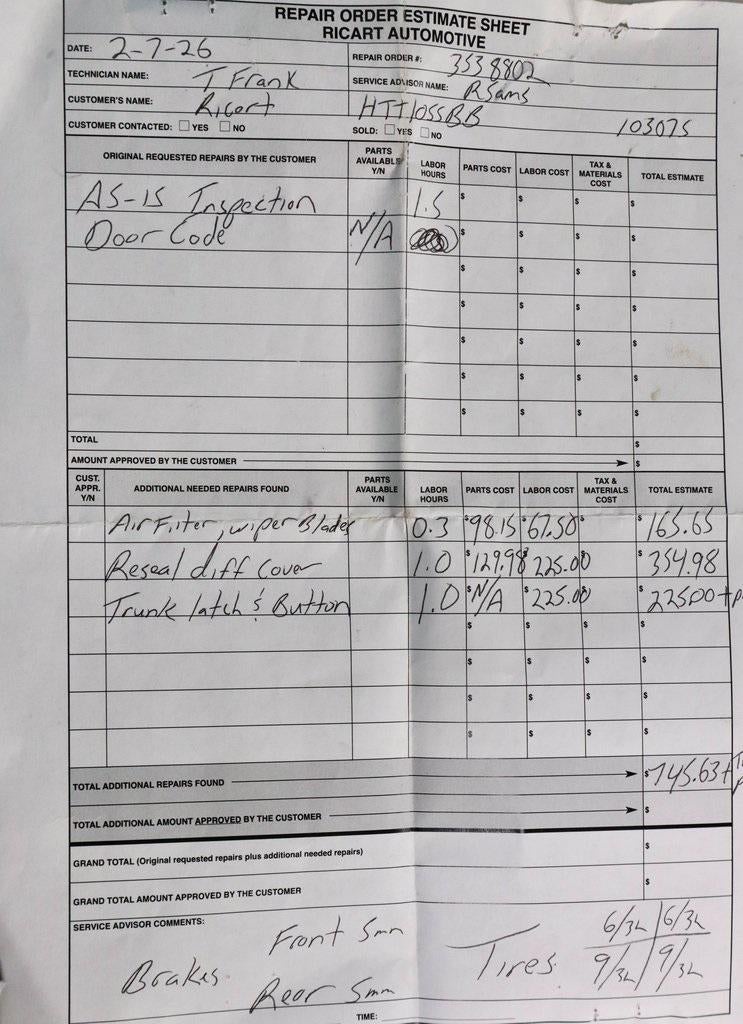 REPAIR ORDER ESTIMATE SHEET
RICART AUTOMOTIVE
DATE: 2-7-26 REPAIR ORDER #: 3538802
TECHNICIAN NAME: T Frank SERVICE ADVISOR NAME: R Sams
CUSTOMER'S NAME: Ricart HTT1055BB 103075
CUSTOMER CONTACTED: YES NO SOLD: YES NO
ORIGINAL REQUESTED REPAIRS BY THE CUSTOMER PARTS AVAILABLE Y/N LABOR HOURS PARTS COST LABOR COST TAX & MATERIALS COST TOTAL ESTIMATE
AS-IS Inspection 1.5 $ $ $ $
Door Code N/A $ $ $ $
$ $ $ $
$ $ $ $
$ $ $ $
$ $ $ $
$ $ $ $
TOTAL $
AMOUNT APPROVED BY THE CUSTOMER $
CUST. APPR. Y/N ADDITIONAL NEEDED REPAIRS FOUND PARTS AVAILABLE Y/N LABOR HOURS PARTS COST LABOR COST TAX & MATERIALS COST TOTAL ESTIMATE
Air Filter, wiper Blades 0.3 $98.15 $67.50 $ $165.65
Reseal diff Cover 1.0 $129.98 $225.00 $354.98
Trunk latch & Button 1.0 $N/A $225.00 $225.00 + p
$ $ $ $
$ $ $ $
$ $ $ $
$ $ $ $
TOTAL ADDITIONAL REPAIRS FOUND $745.63 +
TOTAL ADDITIONAL AMOUNT APPROVED BY THE CUSTOMER $
GRAND TOTAL (Original requested repairs plus additional needed repairs) $
GRAND TOTAL AMOUNT APPROVED BY THE CUSTOMER $
SERVICE ADVISOR COMMENTS:
Front 5mm 6/32 6/32
Brakes Tires
Rear 5mm 9/32 9/32
TIME: